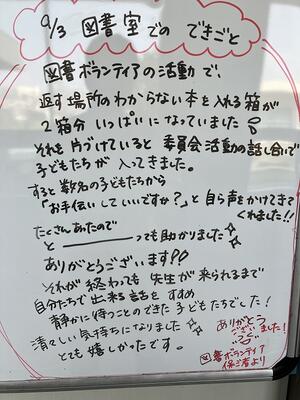 9/3 図書室での できごと
図書ボランティアの活動で、
返す場所のわからない本を入れる箱が
2箱分 いっぱいに なっていました
それを片づけていると 委員会活動の話し合いで
子どもたちが 入ってきました。
すると数名の子どもたちから
「お手伝いしていいですか?」と自ら声をかけてきて
くれました!!
たくさんあたので
と ーーーーーっても助かりました
ありがとうございます!!
それが 終わっても 先生が 来られるまで
自分たちで出来る話を すすめ
静かに待つことのできた 子どもたちでした!
清々しい気持ちになりました
とても 嬉しかったです。
ありがとう
ござい
ました!
図書ボランティア
保ご者より